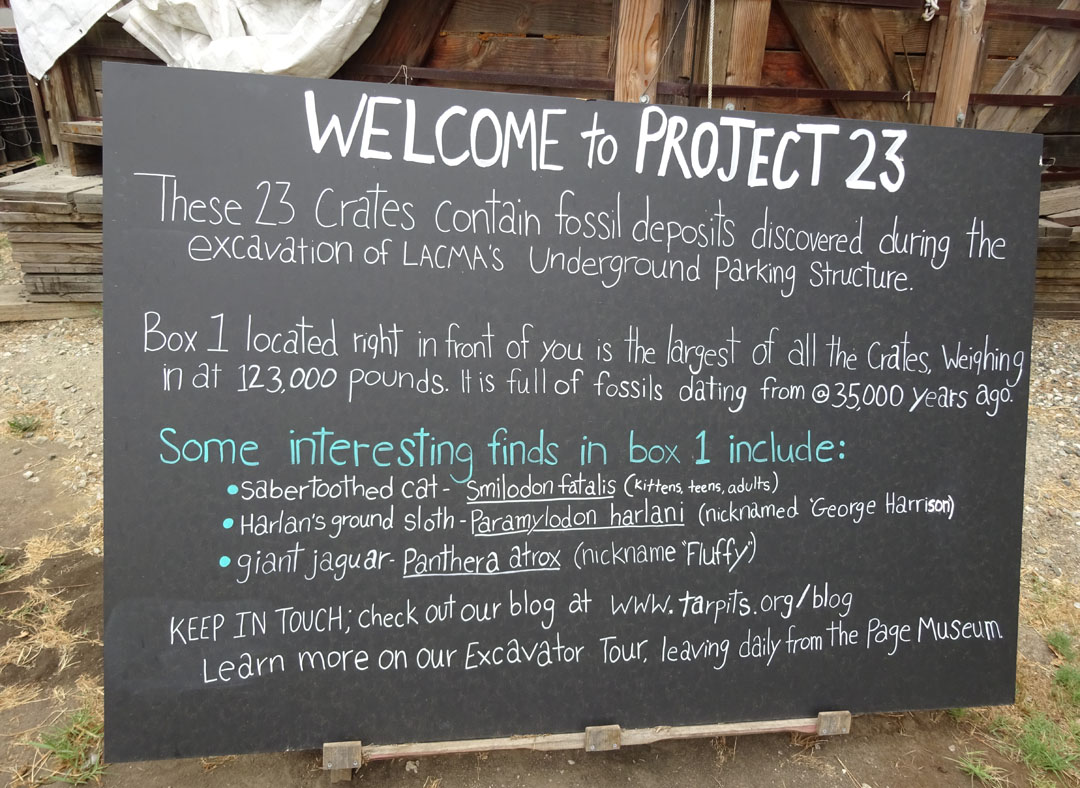 WELCOME to PROJECT 23
These 23 Crates contain fossil deposits discovered during the
excavation of LACMA'S Underground Parking Structure.
Box 1 located right in front of you is the largest of all the Crates, Weighing
in at 123,000 pounds. It is full of fossils dating from @35,000 years ago.
Some interesting finds in box 1 include:
• sabertoothed cat - Smilodon fatalis (kittens, teens, adults)
• Harlan's ground sloth - Paramylodon harlani (nicknamed 'George Harrison)
• giant jaguar - Panthera atrox (nickname "Fluffy")
KEEP IN TOUCH; check out our blog at www.tarpits.org/blog
Learn more on our Excavator Tour, leaving daily from the Page Museum